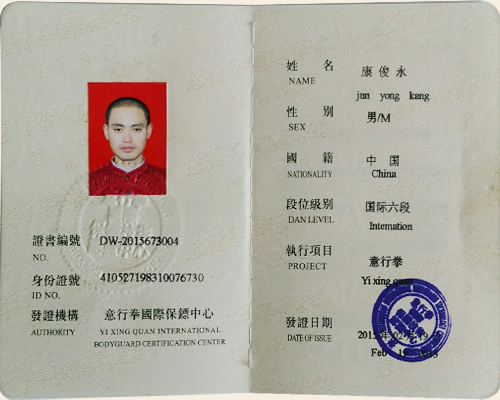 證書編號 DW-2015673004
NO.
身份證號 410527198310076730
ID NO.
發證機構 意行拳國際保鏢中心
AUTHORITY YI XING QUAN INTERNATIONAL
BODYGUARD CERTIFICATION CENTER
姓 名 康俊永
NAME jun yong kang
性 别 男/M
SEX
國 籍 中 国
NATIONALITY China
段位級别 国际六段
DAN LEVEL Internation
執行項目 意行拳
PROJECT Yi xing quan
發證日期
DATE OF ISSUE Feb